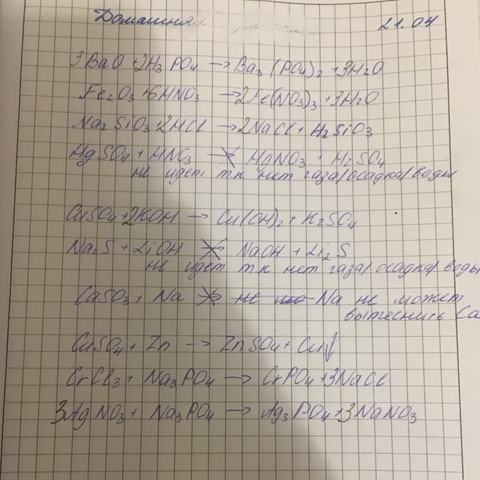 Домашняя 21.04
3BaO + 2H3PO4 → Ba3(PO4)2 + 3H2O
Fe2O3 + 6HNO3 → 2Fe(NO3)3 + 3H2O
Na2SiO3 + 2HCl → 2NaCl + H2SiO3
HgSO4 + HNO3 → HnNO3 + H2SO4
не идет т к нет газа/осадка/воды
CuSO4 + 2KOH → Cu(OH)2 + K2SO4
Na2S + LiOH → NaOH + Li2S
не идет т к нет газа/осадка/воды
CaSO3 + Na → Na не может
вытеснить Ca
CuSO4 + Zn → ZnSO4 + Cu↓
CrCl3 + Na3PO4 → CrPO4 + 3NaCl
3AgNO3 + Na3PO4 → Ag3PO4 + 3NaNO3